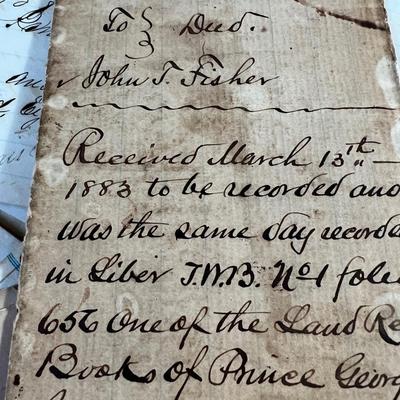 To } Deed.
John T. Fisher
Received March 13th —
1883 to be recorded and
was the same day recorded
in Liber J.W.B. No 1 folio
656 One of the Land Re
Books of Prince George